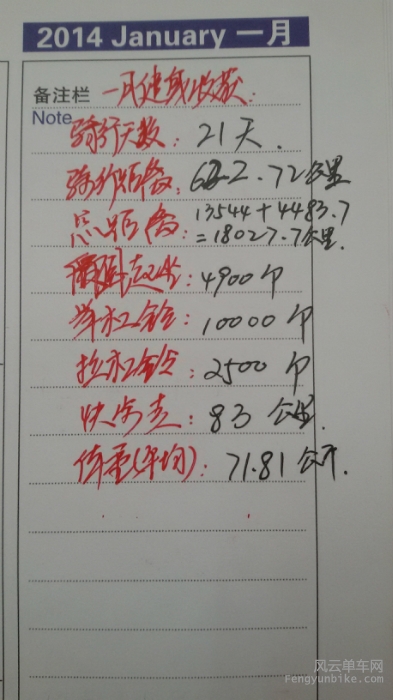 2014 January 一月
备注栏 一月健身收获:
Note
骑行天数: 21天.
骑行距离: 622.72公里
总距离: 13544+4483.7
=18027.7公里.
仰卧起坐: 4900个
举杠铃: 10000个
拉杠铃: 2500个
快步走: 83公里.
体重(平均): 71.81公斤.
风云单车网
Fengyunbike.com